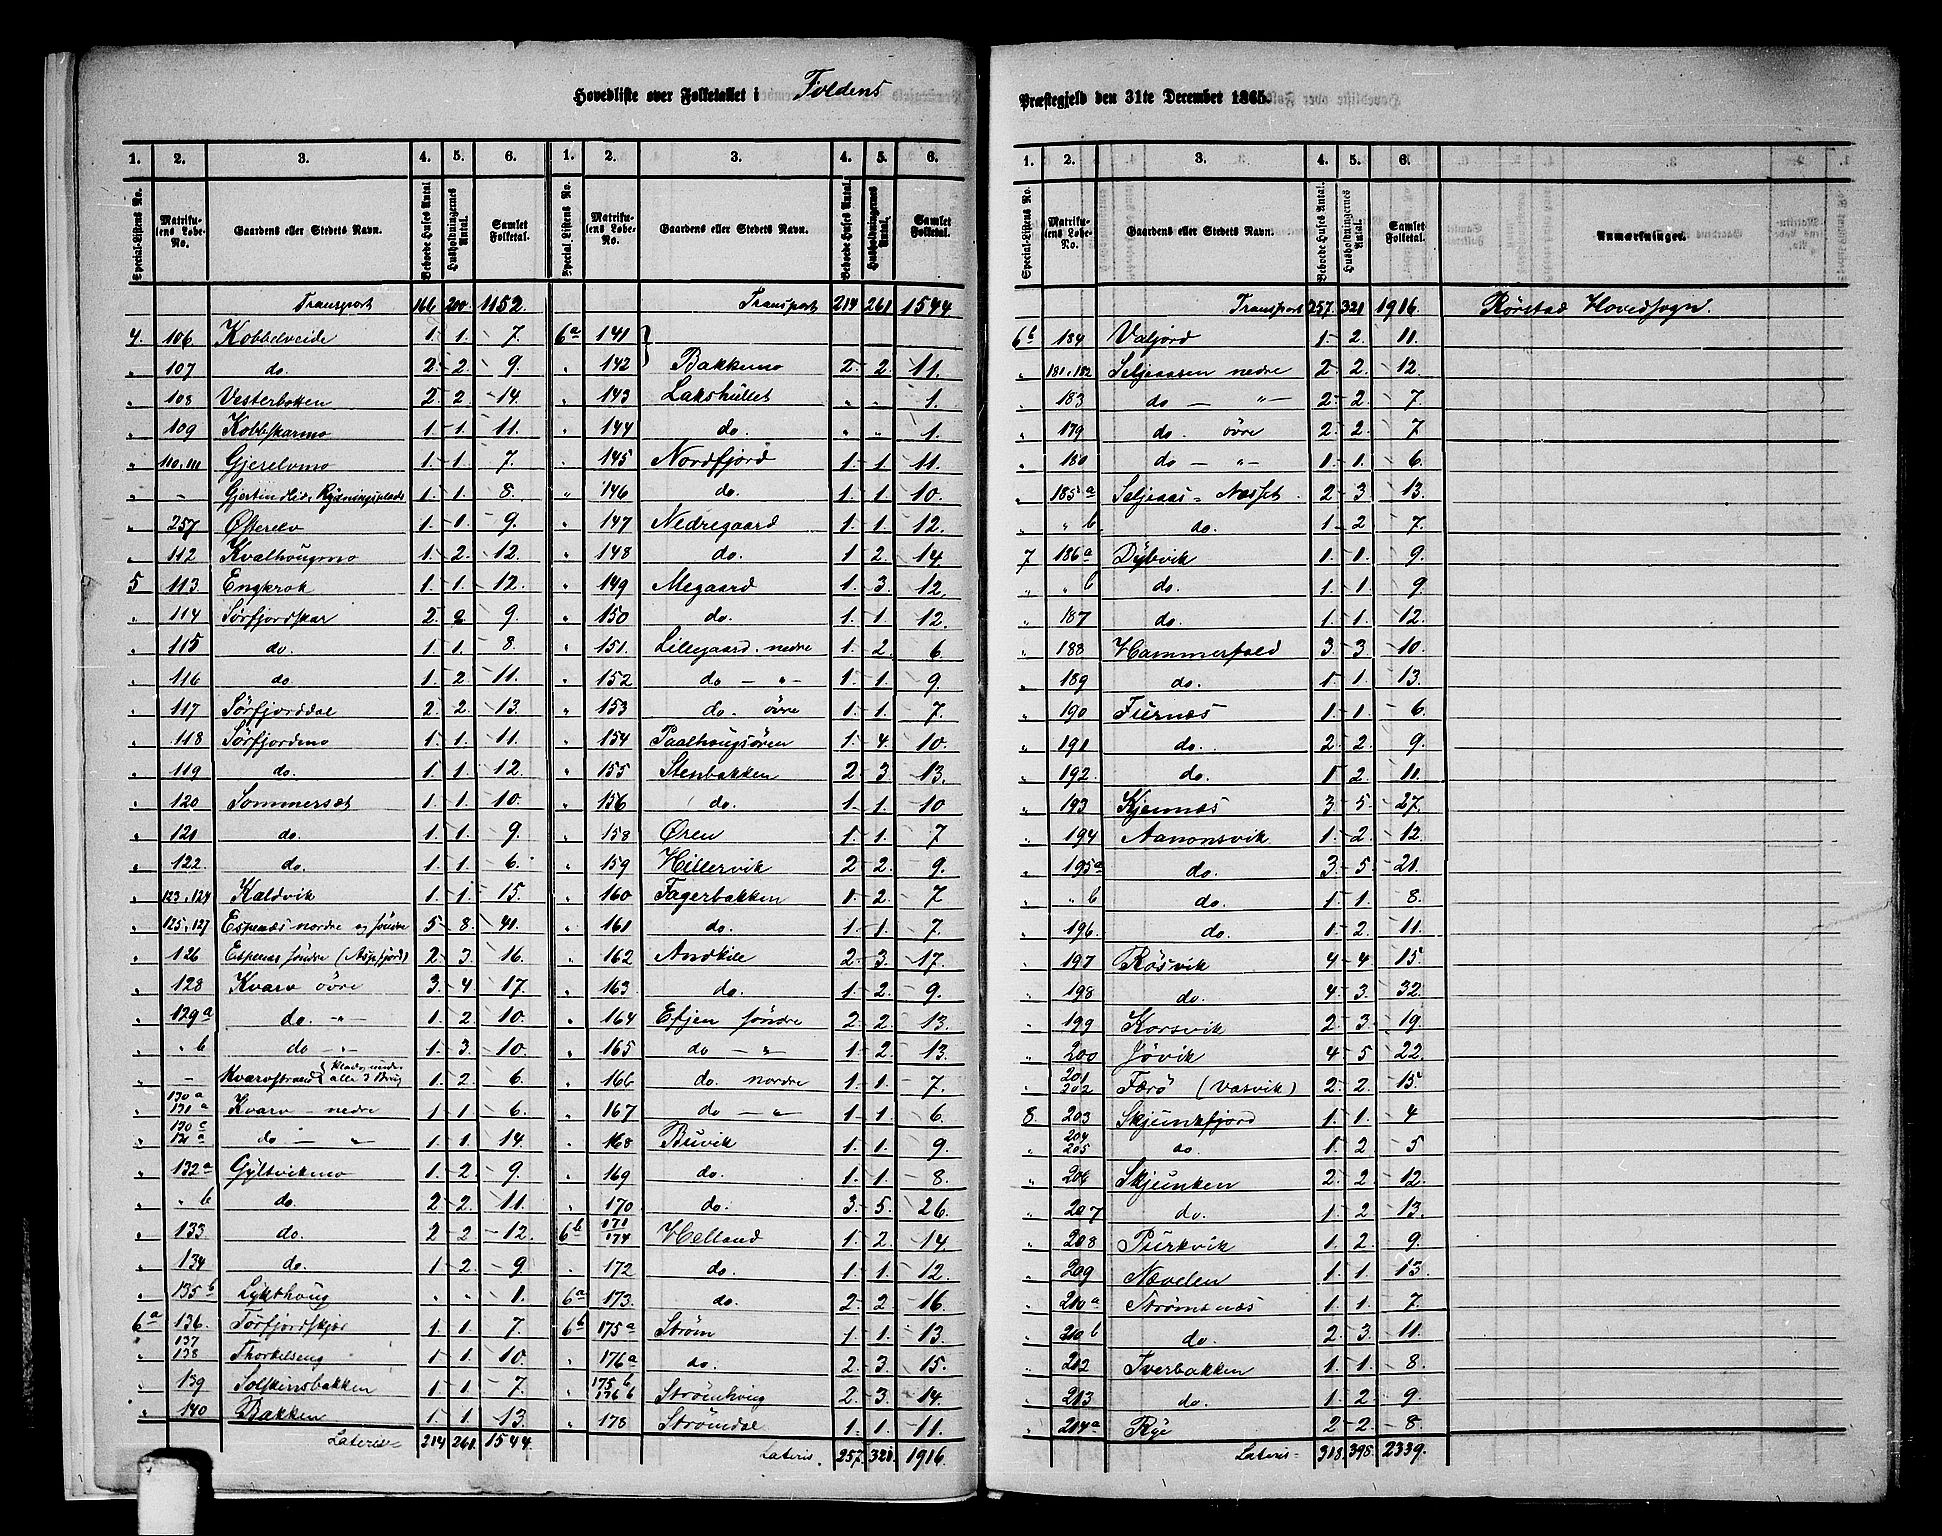 Hovedliste over Folketallet i Foldens Præstegjeld den 31te December 1865.
1. 2. 3. 4. 5. 6. 1. 2. 3. 4. 5. 6.
Special-Listens No. Matrikulens Løbe-No. Gaardens eller Stedets Navn. Beboede Huses Antal Husholdningernes Antal. Samlet Folketal. Special Listens No. Matrikulens Løbe-No. Gaardens eller Stedets Navn. Beboede Huses Antal. Husholdningernes Antal. Samlet Folketal.
Transport 166 200 1152. Transport 214 261 1544
4. 106. Kobbelveide 1. 1. 7. 6a 141
" 107 do. 2. 2. 9. " 142 Bakkemo 2. 2. 11.
" 108 Vesterbotten 2. 2. 14. " 143 Lakshullet " " 1.
" 109 Kobbskarmo 1. 1. 11. " 144 do. " " 1.
" 110, 111 Gjerelvmo 1. 1. 7. " 145 Nordfjord 1. 1. 11.
" - Gjertindlid, Rydningsplads 1. 1. 8. " 146 do. 1. 1. 10.
" 257 Østerelv 1. 1. 9. " 147 Nedregaard 1. 1. 12.
" 112 Kvalhougmo 1. 2. 12. " 148 do. 1. 2. 14.
5 113. Engkrok 1. 1. 12. " 149 Megaard 1. 3. 12.
" 114 Sørfjordskar 2. 2 9. " 150 do. 1. 1. 12.
" 115 do. 1. 1. 8. " 151. Lillegaard. nedre 1. 2. 6
" 116 do. 1. 2. 11. " 152 do — " — 1. 1. 9.
" 117 Sørfjorddal 2. 2. 13. " 153 do. øvre 1. 1. 7.
" 118 Sørfjordmo 1. 1. 11. " 154 Paalhougsøren 1. 4. 10.
" 119 do. 1. 1. 12. " 155 Stenbakken 2. 3 13.
" 120 Sommerset 1. 1. 10. " 156 do. 1. 1. 10
" 121 do. 1. 1. 9. " 158 Øren 1. 1. 7
" 122 do. 1. 1. 6. " 159 Hillervik 2. 2. 9.
" 123, 124 Kaldvik 1. 1. 15. " 160 Fagerbakken 1. 2. 7
" 125, 127 Espenæs nordre og søndre 5 8. 41. " 161 do. 1. 1. 7.
" 126 Espenæs søndre (Aspfjord) 2. 3. 16. " 162 Andkile 2. 3. 17.
" 128 Kvarv øvre 3. 4 17. " 163 do. 1. 2. 9.
" 129a do. — " — 1. 2. 10. " 164 Efjen søndre 2. 2. 13.
" " b do — " — 1. 3. 10. " 165 do — " — 1. 2. 13.
" — Kvarvstrand { Plads under alle 3 Brug 1. 2. 6 " 166 do. nordre 1. 1. 7.
" 130a 131a Kvarv — nedre 1. 1. 6. " 167 do — " — 1. 1. 6.
" 130c 131a do — " 1. 1. 14. " 168 Buvik 1. 1. 9.
" 132a Gyltvikmo 1. 2. 9. " 169 do. 1. 1. 8.
" " b do. 2. 2. 11. " 170 do. 3. 5. 26.
" 133 do. 2. 2 12. 6b 171/174 Helland 1. 2. 14.
" 134 do. 1. 2. 9 " 172 do. 1. 1. 12.
" 135b Lykthoug " " 1. 6a 173. do. 2. 2 16.
6a 136. Tørfjordskjær 1. 1. 7. 6b 175a Strøm 1. 1. 13.
" 137 138 Thorkelseng 1. 1. 10. " 176a do. 2. 3. 15.
" 139 Solskinsbakken 1. 1. 7. " 175b 176b Strømhoug 2. 3. 14.
" 140 Bakken 1. 1. 13. " 178 Strømdal 1. 1. 11.
Lateris 214 261. 1544. Lateris. 257. 321. 1916.
1. 2. 3. 4. 5. 6.
Special-Listens No. Matrikulens Løbe-No. Gaardens eller Stedets Navn. Beboede Huses Antal. Husholdningernes Antal. Samlet Folketal. Anmærkninger.
Transport 257. 321 1916. Rørstad Hovedsogn.
6b 184 Valjord 1. 2. 11.
" 181, 182 Seljeaasen nedre 2. 2. 12.
" 183 do — " — 2. 2. 7
" 179 do. øvre 2. 2. 7
" 180 do — " — 1. 1. 6.
" 185a Seljeaas = Næsset 2. 3. 13.
" " b do. 1. 2 7.
7 186a Dybvik 1. 1. 9.
" " b do. 1. 1. 9.
" 187 do. 1. 1. 12.
" 188 Hammerfald 3. 3. 10.
" 189 do. 1. 1. 13.
" 190 Furnæs 1. 1. 6.
" 191 do. 2. 2. 9.
" 192. do. 1. 2. 11.
" 193 Kjennæs 3. 5. 27.
" 194 Aanonsvik 1. 2. 12.
" 195a do. 3. 5. 21.
" " b do. 1. 1. 8.
" 196. do. 1. 2. 11.
" 197 Røsvik 4. 4. 15.
" 198 do. 4. 3. 32.
" 199 Korsvik 2. 3. 19.
" 200 Jøvik 4. 5. 22.
" 201 202 Færø (Vasvik) 2. 2. 15.
8. 203 Skjunkfjord 1. 1. 4
" 204 205 do. 1. 2. 5
" 206 Skjunken 2. 2. 12.
" 207 do. 1. 2 13.
" 208 Purkvik 1. 2. 9.
" 209 Nævelen 1. 1. 13.
" 210a Strømsnæs 1. 1. 7.
" 210b do. 2. 3. 11.
" 212 Iverbakken 1. 1. 8.
" 213 do. 1. 2. 9.
" 214a Rye 2. 2. 8
Lateris 318. 398. 2339.